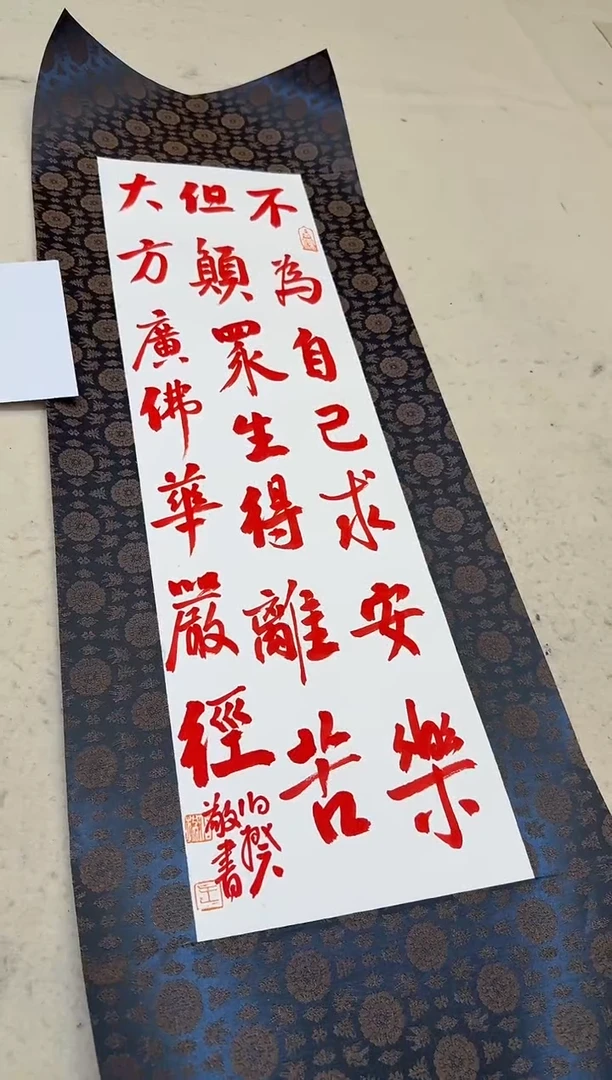 不為自己求安樂
但願眾生得離苦
大方廣佛華嚴經
敬書